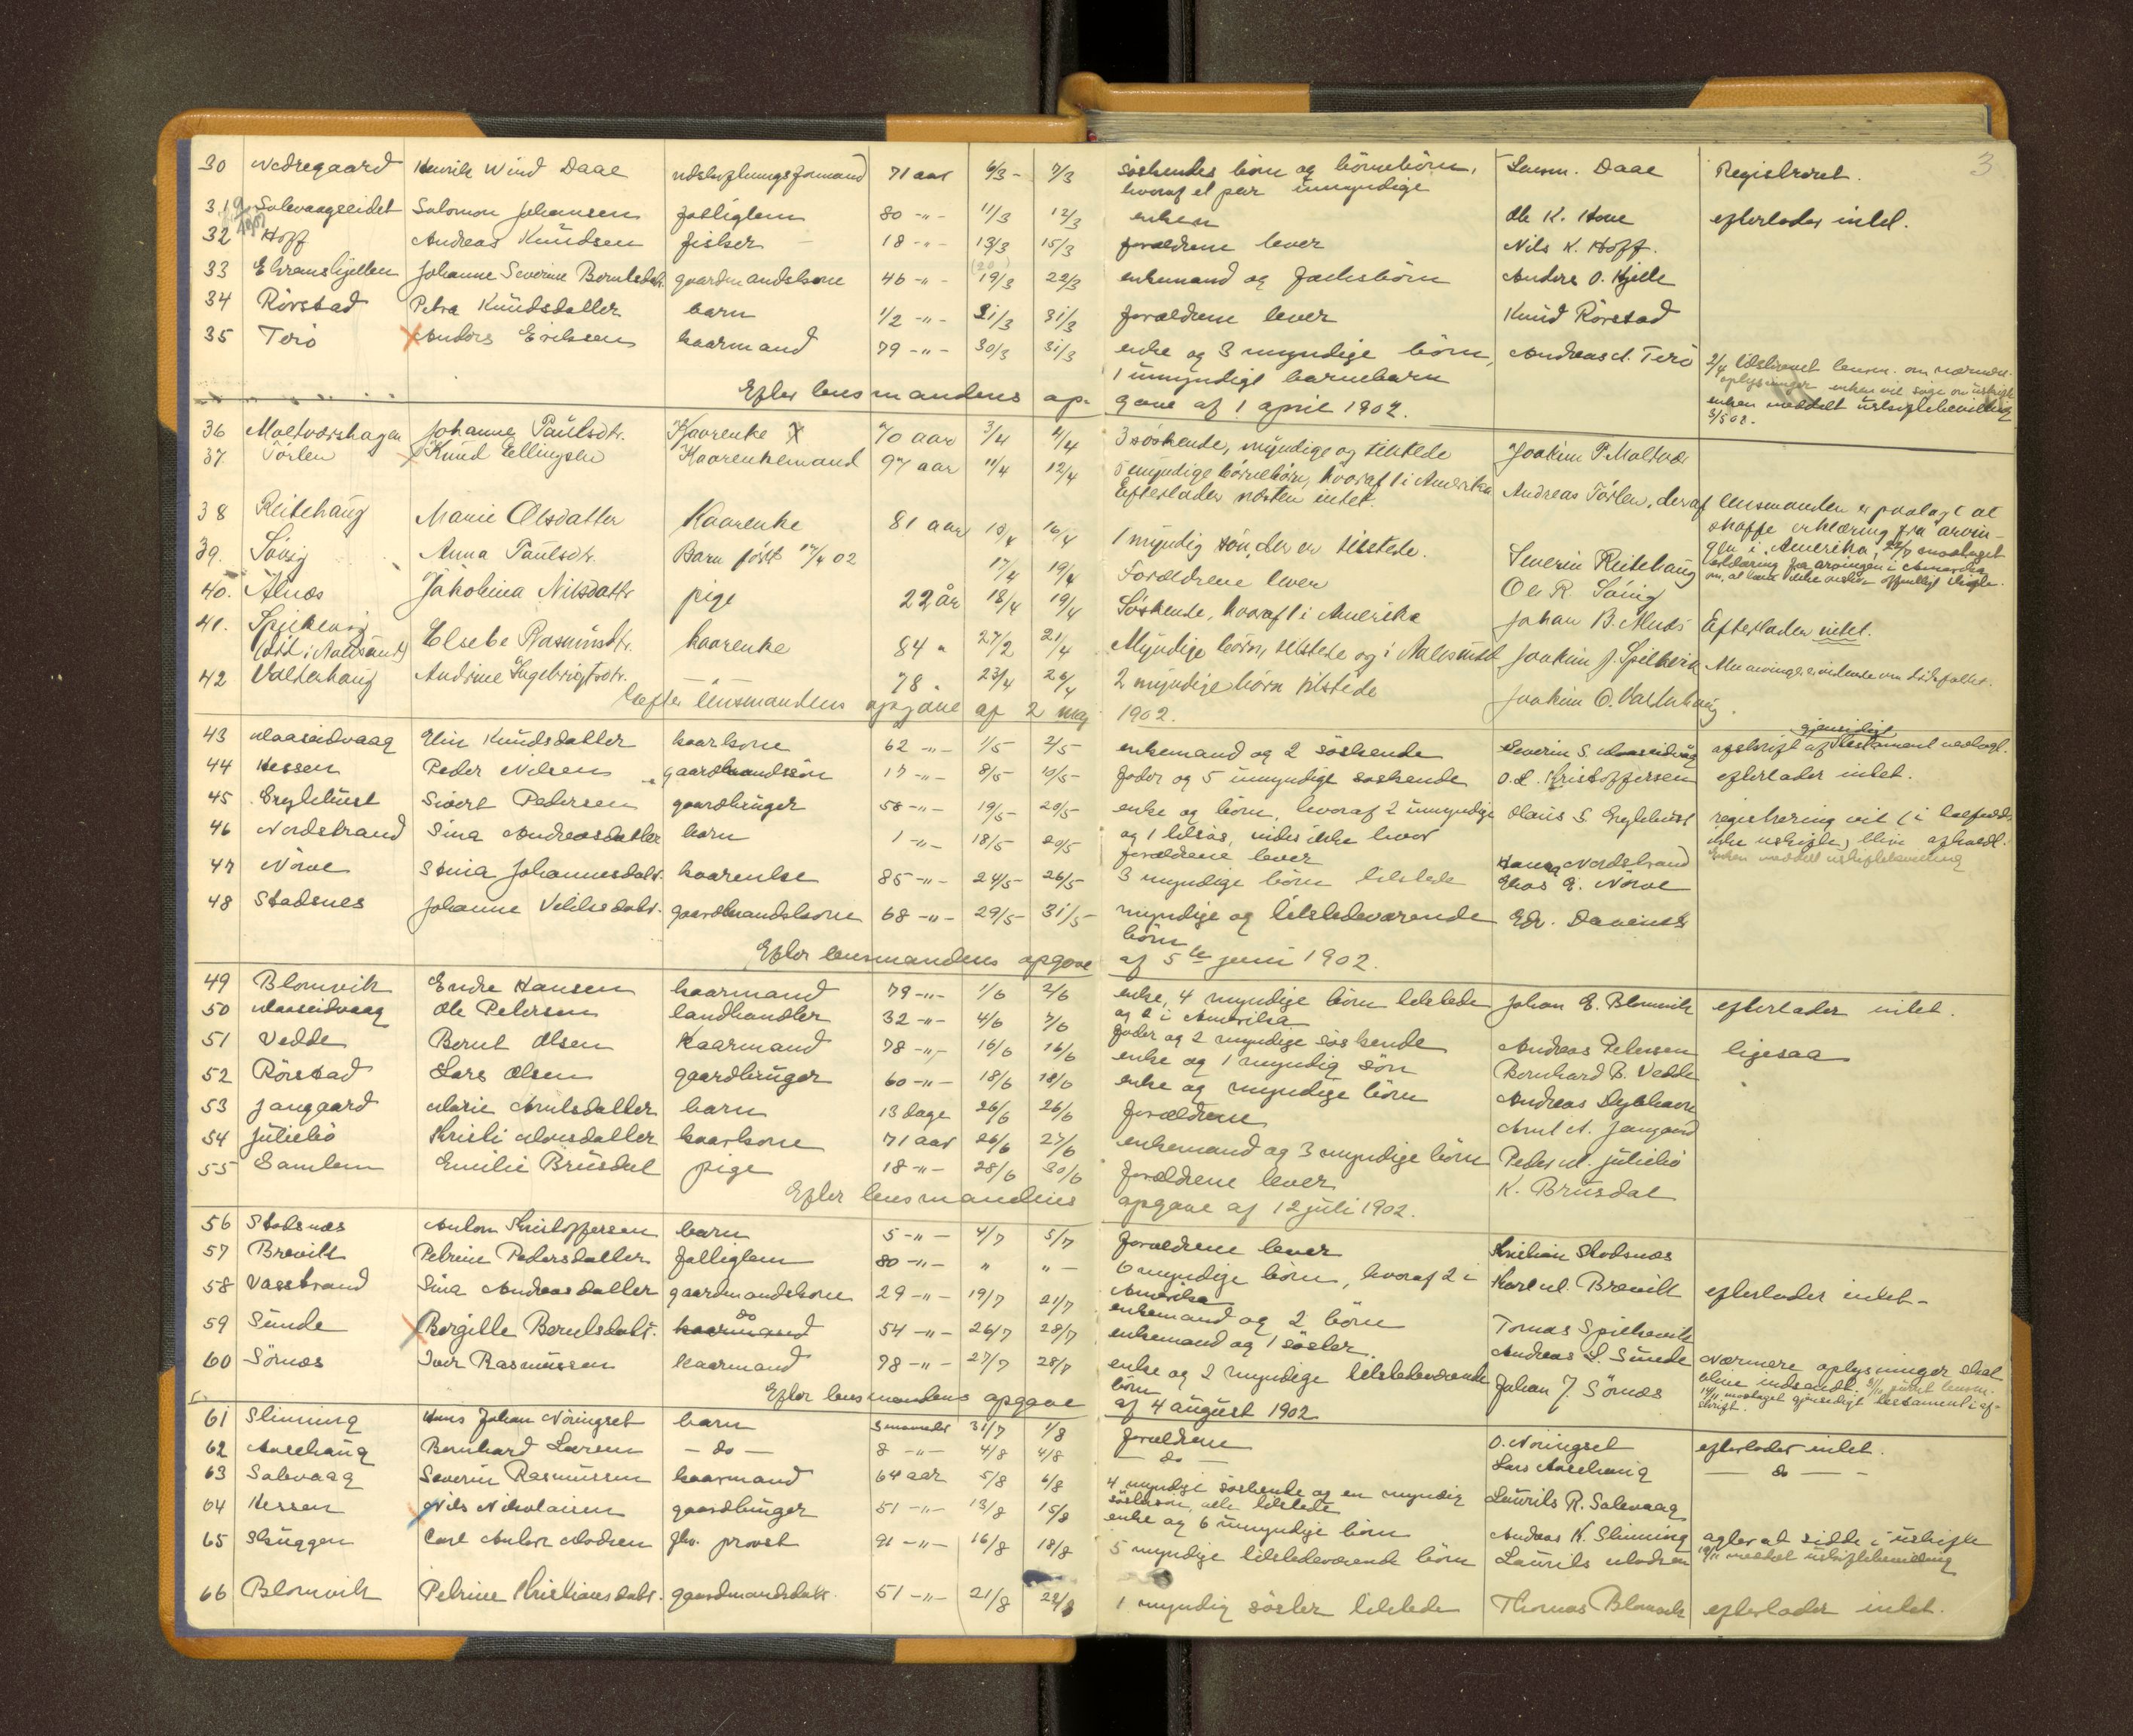 3
30 Nedregaard Henrik Wind Daae udskiftningsformand 71 aar 6/3 - 7/3 søskendes børn og børnebørn, Lensm. Daae Registreret.
hvoraf et par umyndige
31 Solevaagseidet Salomon Johansen fattiglem 80 -"- 11/3 12/3 enken Ole K. Hove efterlader intet.
32 Hoff Andreas Knudsen fisker 18 -"- 13/3 15/3 forældrene lever Nils K. Hoff.
33 Johanne Severine gaardmandskone 46 -"- 19/3 22/3 enkemand og Anders O. Hjelle
34 Rörstad Petra Knudsdatter barn 1/2 -"- 21/3 31/3 forældrene lever Knud Rörstad
35 Terö Anders Eriksen kaarmand 79 -"- 30/3 31/3 enke og 3 myndige börn, Andreas A. Terö
1 umyndigt barnebarn
enken meddelt uskiftebevilling
3/5 02.
Efter lensmandens opgave af 1 april 1902.
36 Moltværshagen Johanne Paulsdtr. Kaarenke 70 aar 3/4 4/4 3 søskende, myndige og tilstede Joakim P. Moltvær
37 Törlen Knud Ellingsen Kaarenkemand 97 aar 11/4 12/4 5 myndige börnebörn, hvoraf 1 i Amerika Andreas Törlen, deraf lensmanden er paalagt at
Efterlader næsten intet. skaffe erklæring fra arvin-
gen i Amerika, 22/7 modtaget
erklæring fra arvingen i Amerika
om, at han ikke önsker offentligt skifte.
38 Reitehaug Marie Olsdatter Kaarenke 81 aar 15/4 16/4 1 myndig sön, der er tilstede. Severin Reitehaug
39. Barn född 17/4 02 17/4 19/4 Forældrene lever
40. Alnæs Jakobina Nilsdattr pige 22 år 18/4 19/4 Söskende, hvoraf 1 i Amerika Johan B. Alnæs Efterlader intet.
41. Spjelkevig Elsebe Rasmusdtr. kaarenke 84 " 27/2 21/4 Myndige börn, tilstede og i Aalesund Joakim J. Spjelkevik
42 Valderhaug Andrine Ingebrigtsdtr. -"- 78 " 23/4 26/4 2 myndige börn tilstede Joakim O. Valderhaug.
Efter lensmandens opgave af 2 maj 1902.
43 Maaseidvaag Elin Knudsdatter kaarkone 62 -"- 1/5 2/5 enkemand og 2 söskende Severin S. Maaseidvåg afskrift af gjensidigt testament vedlagt.
44 Hessen Peder Nilsen gaardmandssön 17 -"- 8/5 10/5 fader og 5 umyndige söskende O. L. Kristoffersen efterlader intet.
45 Sivert Pedersen gaardbruger 58 -"- 19/5 20/5 enke og börn, hvoraf 2 umyndige
Enken meddelt uskiftebevilling
46 Nordstrand Sina Andreasdatter barn 1 -"- 18/5 20/5 forældrene lever Hans Nordstrand
47 Nörve Stina Johannesdatr. kaarenke 85 -"- 24/5 26/5 3 myndige börn tilstede Elias E. Nörve
48 Stadsnes Johanne gaardmandskone 68 -"- 29/5 31/5 myndige og tilstedeværende
börn
Efter lensmandens opgave af 5te juni 1902.
49 Blomvik Endre Hansen kaarmand 79 -"- 1/6 2/6 enke, 4 myndige börn tilstede Johan E. Blomvik efterlader intet.
og 2 i Amerika
50 Maaseidvaag Ole Petersen landhandler 32 -"- 4/6 7/6 fader og 2 myndige söskende Andreas Petersen ligesaa
51 Vedde Bernt Olsen kaarmand 78 -"- 16/6 16/6 enke og 1 myndig sön Bernhard B. Vedde
52 Rörstad Lars Olsen gaardbruger 60 -"- 18/6 18/6 enke og myndige börn Andreas Dybhavn
53 Jangaard Marie Arntsdatter barn 13 dage 26/6 26/6 forældrene Arnt A. Jangaard
54 Juliebö Kristi kaarkone 71 aar 26/6 27/6 enkemand og 3 myndige börn Peder M. Juliebö
55 Samlem Emilie Brusdal pige 18 -"- 28/6 30/6 forældrene lever K. Brusdal
Efter lensmandens opgave af 12 juli 1902.
56 Stadsnæs Anton Kristoffersen barn 5 -"- 4/7 5/7 forældrene lever Kristian Stadsnæs
57 Brevik Petrine Pedersdatter fattiglem 80 -"- " " - 6 myndige börn, hvoraf 2 i Karl M. Brevik efterlader intet -
Amerika
58 Vasstrand Sina Andreasdatter gaardmandskone 29 -"- 19/7 21/7 enkemand og 2 börn Tomas Spjelkevik
59 Sunde Bergitte Berntsdatr. do 54 -"- 26/7 28/7 enkemand og 1 söster. Andreas L. Sunde Nærmere oplysninger skal
blive indsendt.
14/11 modtaget gjensidigt testament i af-
skrift.
60 Sörnæs Iver Rasmussen kaarmand 78 -"- 27/7 28/7 enke og 2 myndige tilstedeværende Johan J. Sörnæs
börn
Efter lensmandens opgave af 4 august 1902
61 Slinning Hans Johan Nöringset barn 3 maaneder 31/7 1/8 forældrene O. Nöringset efterlader intet.
62 Aasehaug Bernhard Larsen - do - 8 -"- 4/8 4/8 - do - Lars Aasehaug - do -
63 Solevaag Severin Rasmussen kaarmand 64 aar 5/8 6/8 4 myndige söskende og en myndig Laurits R. Solevaag
söskenson, alle tilstede
64 Hessen Nils Nikolaisen gaardbruger 51 -"- 13/8 15/8 enke og 6 umyndige börn Andreas K. Slinning agter at sidde i uskifte
14/11 meddelt uskiftebevilling
65 Skuggen Carl Anton Madsen fhv. provst 91 -"- 16/8 18/8 5 myndige tilstedeværende börn Laurits Madsen
66 Blomvik Petrine Kristiansdatr. gaardmandsdatr. 51 -"- 21/8 22/8 1 myndig söster tilstede Thomas Blomvik efterlader intet.